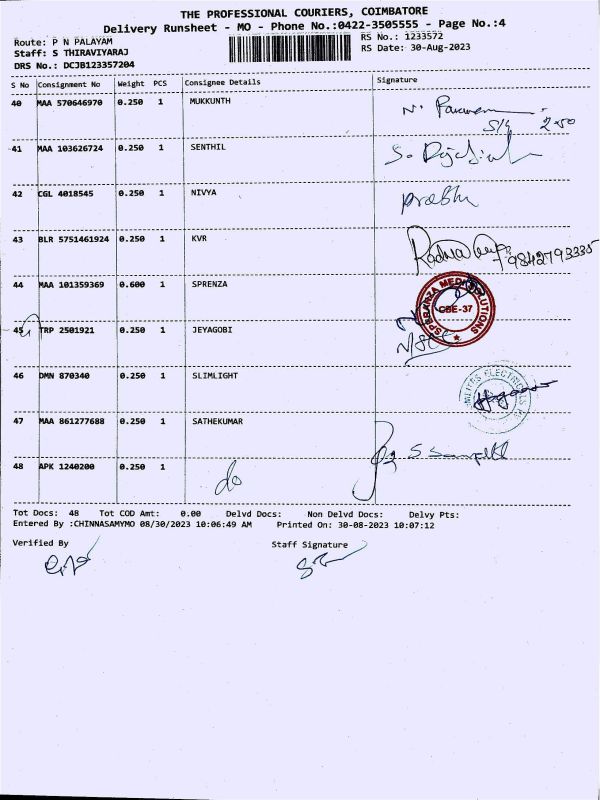 THE PROFESSIONAL COURIERS, COIMBATORE
Delivery Runsheet - MO - Phone No.:0422-3505555 - Page No.:4
Route: P N PALAYAM
RS No.: 1233572
Staff: S THIRAVIYARAJ
RS Date: 30-Aug-2023
DRS No.: DCJB123357204
S No Consignment No Weight PCS Consignee Details Signature
40 MAA 570646970 0.250 1 MUKKUNTH
41 MAA 103626724 0.250 1 SENTHIL
42 CGL 4018545 0.250 1 NIVYA Prabhu
43 BLR 5751461924 0.250 1 KVR 9842793335
44 MAA 101359369 0.600 1 SPRENZA
SPERANZA MEDI SOLUTIONS
CBE-37
45 TRP 2501921 0.250 1 JEYAGOBI
46 DMN 870340 0.250 1 SLIMLIGHT
47 MAA 861277688 0.250 1 SATHEKUMAR
48 APK 1240200 0.250 1 do
Tot Docs: 48 Tot COD Amt: 0.00 Delvd Docs: Non Delvd Docs: Delvy Pts:
Entered By :CHINNASAMYMO 08/30/2023 10:06:49 AM Printed On: 30-08-2023 10:07:12
Verified By Staff Signature